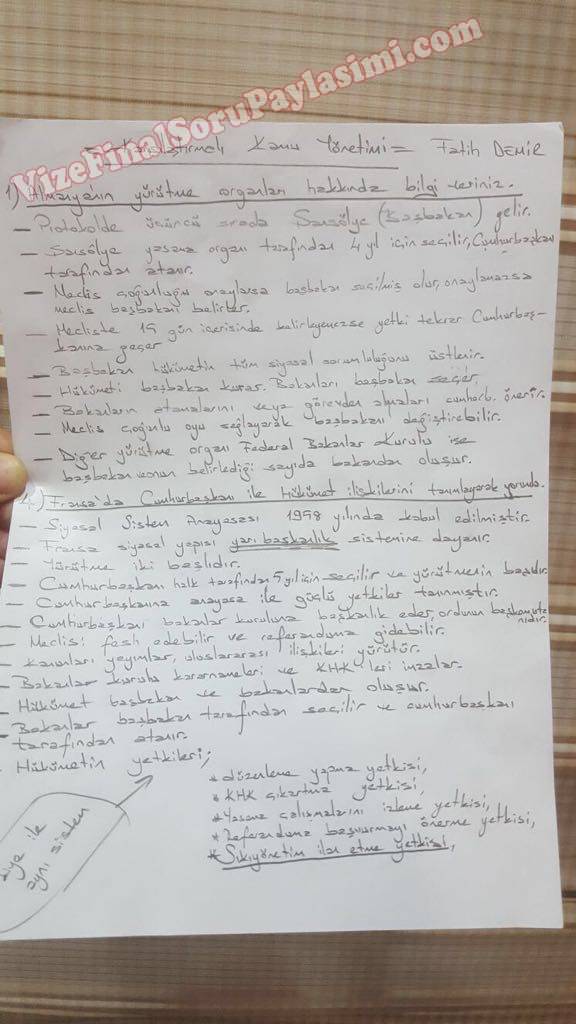 VizeFinalSoruPaylasimi.com
Karşılaştırmalı Kamu Yönetimi = Fatih DEMİR
1) Almanya'nın yürütme organları hakkında bilgi veriniz.
— Protokolde üçüncü sırada Şansölye (Başbakan) gelir.
— Şansölye yasama organı tarafından 4 yıl için seçilir, Cumhurbaşkanı
tarafından atanır.
— Meclis çoğunluğu onaylarsa başbakan seçilmiş olur, onaylamazsa
meclis başbakanı belirler.
— Mecliste 15 gün içerisinde belirleyemezse yetki tekrar Cumhurbaş-
kanına geçer
— Başbakan hükümetin tüm siyasal sorumluluğunu üstlenir.
— Hükümeti başbakan kurar. Bakanları başbakan seçer
— Bakanların atamalarını veya görevden almaları cumhurb. önerir.
— Meclis çoğunlu oyu sağlayarak başbakanı değiştirebilir.
— Diğer yürütme organı Federal Bakanlar Kurulu ise
başbakan ve onun belirlediği sayıda bakandan oluşur.
2) Fransa'da Cumhurbaşkanı ile Hükümet ilişkilerini tanımlayarak yorumla.
— Siyasal Sistem Anayasası 1958 yılında kabul edilmiştir.
— Fransa siyasal yapısı yarı başkanlık sistemine dayanır.
— Yürütme iki başlıdır.
— Cumhurbaşkanı halk tarafından 5 yıl için seçilir ve yürütmenin başıdır.
— Cumhurbaşkanına anayasa ile güçlü yetkiler tanınmıştır.
— Cumhurbaşkanı bakanlar kuruluna başkanlık eder, ordunun başkomuta
nıdır.
— Meclisi fesh edebilir ve referanduma gidebilir.
— Kanunları yayımlar, uluslararası ilişkileri yürütür.
— Bakanlar kurulu kararnameleri ve KHK'leri imzalar.
— Hükümet başbakan ve bakanlardan oluşur.
— Bakanlar başbakan tarafından seçilir ve cumhurbaşkanı
tarafından atanır.
— Hükümetin yetkileri;
* düzenleme yapma yetkisi,
* KHK çıkartma yetkisi,
* Yasama çalışmalarını izleme yetkisi,
* Referanduma başvurmayı önerme yetkisi,
* Sıkıyönetim ilan etme yetkisi,
ile
aynı sistem